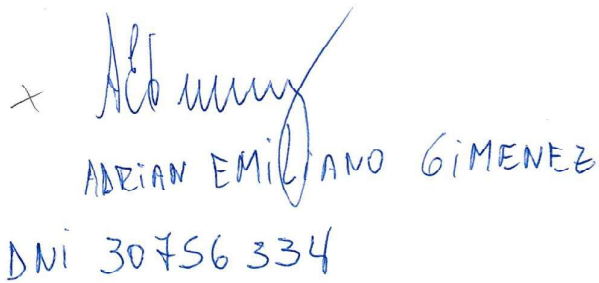 +
ADRIAN EMILIANO GIMENEZ
DNI 30756334